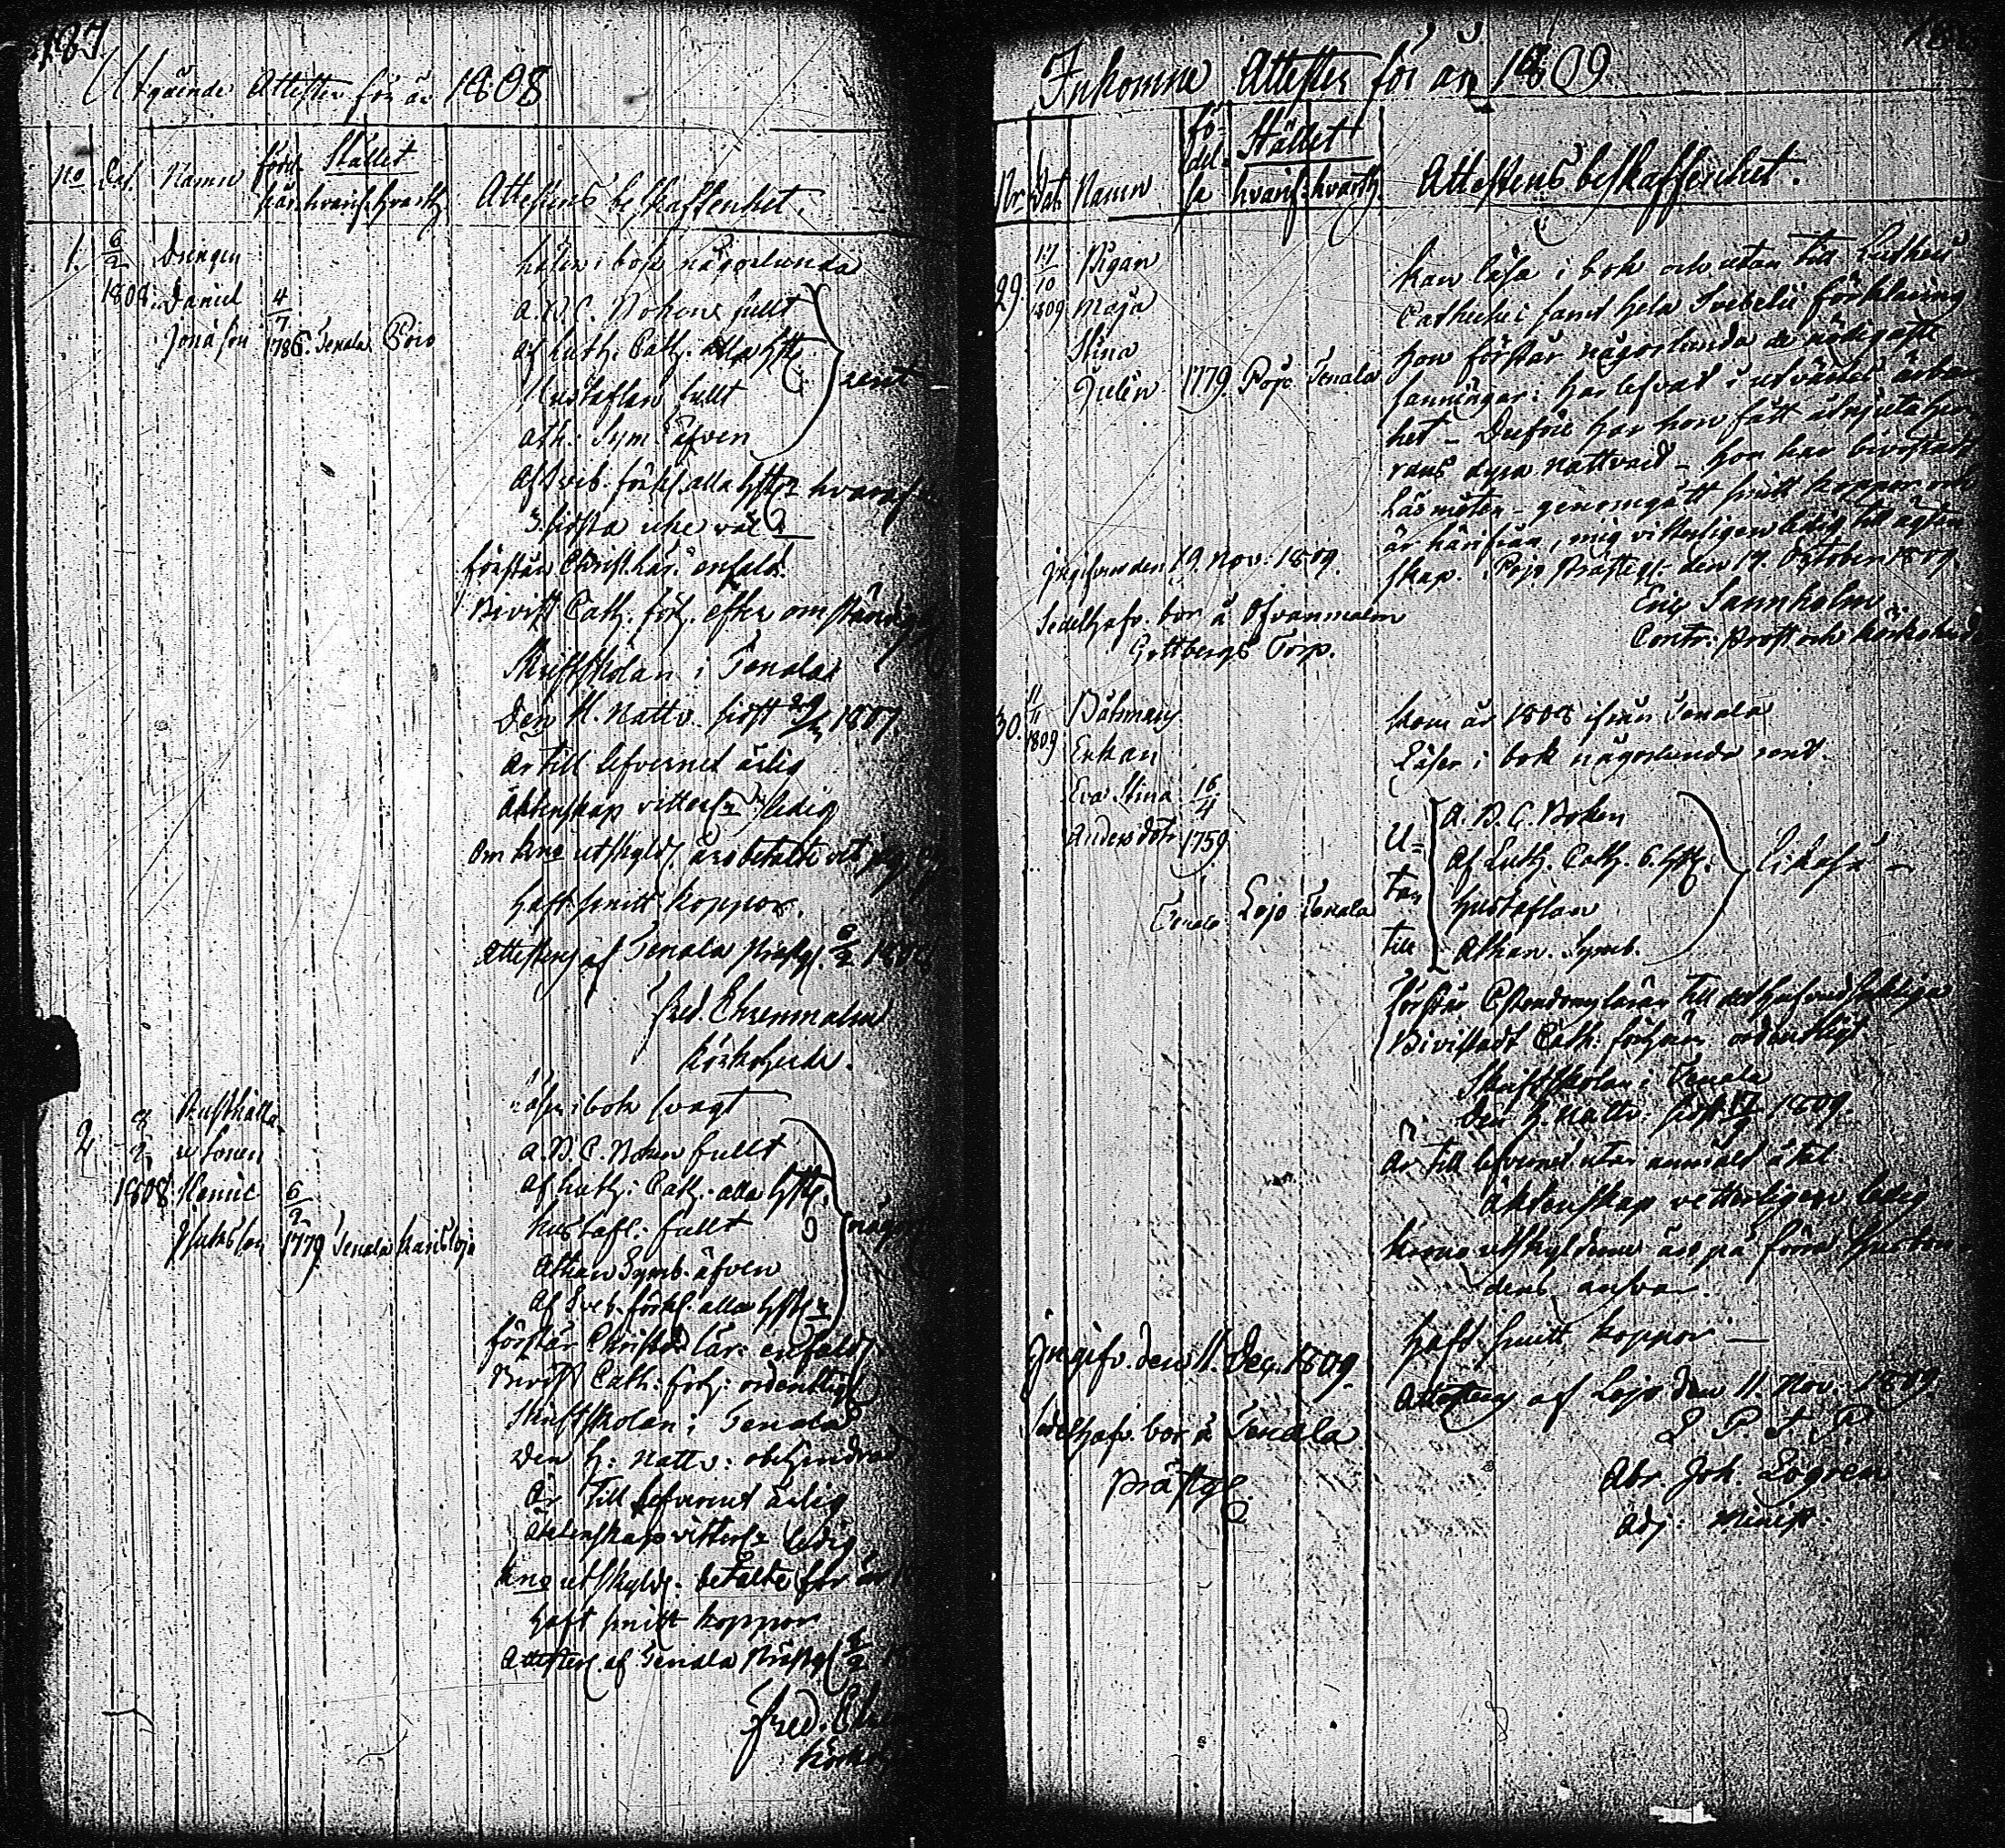 187
Utgående Attester för år 1808
No Dat. Namn Stället
hvarif. hvarth.
Attestens beskaffenhet.
1. 6/2 1808. Drengen Daniel Jonasson 4/7 1786. Tenala
i bok någorlunda
A.B.C. Boken fullt
af Luth. Cath. alla hst.
Hustaflan fullt
Ath. Sym. äfven
rent
Af Sveb. förkl. alla hst.
3 sidsta icke väl
förstår Christ. lär. enfald.
Bivist Cath. förh. efter
Skriftskolan i Tenala
Den H. Nattv. sidst 1807.
är till lefvernet ärlig
Äktenskap vitterl. ledig
haft smitt koppor.
af Tenala Prästg. 6/2
Fred. Ehrenmalm
Kÿrkoherde.
2. 1808 Rusthålla-
resonen
6/2 1779 Tenala Karislojo
i bok svagt
A.B.C. Boken fullt
af Luth. Cath. alla hst.
Hustafl. fullt
Athan. Symb. äfven
Af Sveb. förkl. alla hst.
förstår Christd. lär. enfald.
Bivist Cath. förh. ordentligt
Skriftskolan i Tenala
Den H. Nattv. obehindrad
Är till lefvernet ärlig
Äktenskap vitterl. ledig
utskyld. betalte för år
haft smitt koppor
af Tenala Prästg.
Fred.
Inkomne Attester för år 1809
Nr Dat. Namn
fö-
del-
se
Stället
hvarif. hvarth.
Attestens beskaffenhet.
29. 17/10 1809 Pigan
Maja
Stina
Julin 1779. Pojo Tenala
Kan läsa i bok och utan till Lutheri
Catheches samt hela Svebelii förklaring
hon förstår någorlunda de nödigaste
sanningar: har lefvat i utvärtes ärbar-
het – Derföre har hon fått åtnjuta Her-
rans dyra nattvard – hon har bivistat
Läsmöten – genomgått smitt koppor och
är härifrån, mig vitterligen ledig till ägten-
skap. Pojo Prästeg. den 19. October 1809.
Eric Sannholm
Contr. Prost och Kÿrkoherde
Ingifven den 19. Nov. 1809.
Sedelhafv. bor å Ofvanmalm
Gottbergs Torp.
30. 11/11 1809 Båtsmans
Enkan
Eva Stina
Andersdotr 16/4 1759
Tenala Lojo Tenala
Kom år 1808 ifrån Tenala
Läser i bok någorlunda rent.
U-
tan
till
A.B.C. Boken
Af Luth. Cath. 6. hst.
Hustaflan
Athan. Symb.
likaså
Förstår Christendomslären till det hufvudsakliga
Bivistadt Cath. förhören ordentligt
Skriftskolan i Tenala
Den H. Nattv. sidst 1809.
Är till lefvernet utan anmäldt åtal
äktenskap vetterligen ledig
Krono utskylderne äro på förra husbon-
dens ansvar.
haft smitt koppor –
af Lojo den 11. Nov. 1809
L. P. S. P.
Abr. Joh. Logren
Adj. Minist.
Ingifv. den 11. Dec. 1809.
Sedelhafv. bor å Tenala
Prästg.